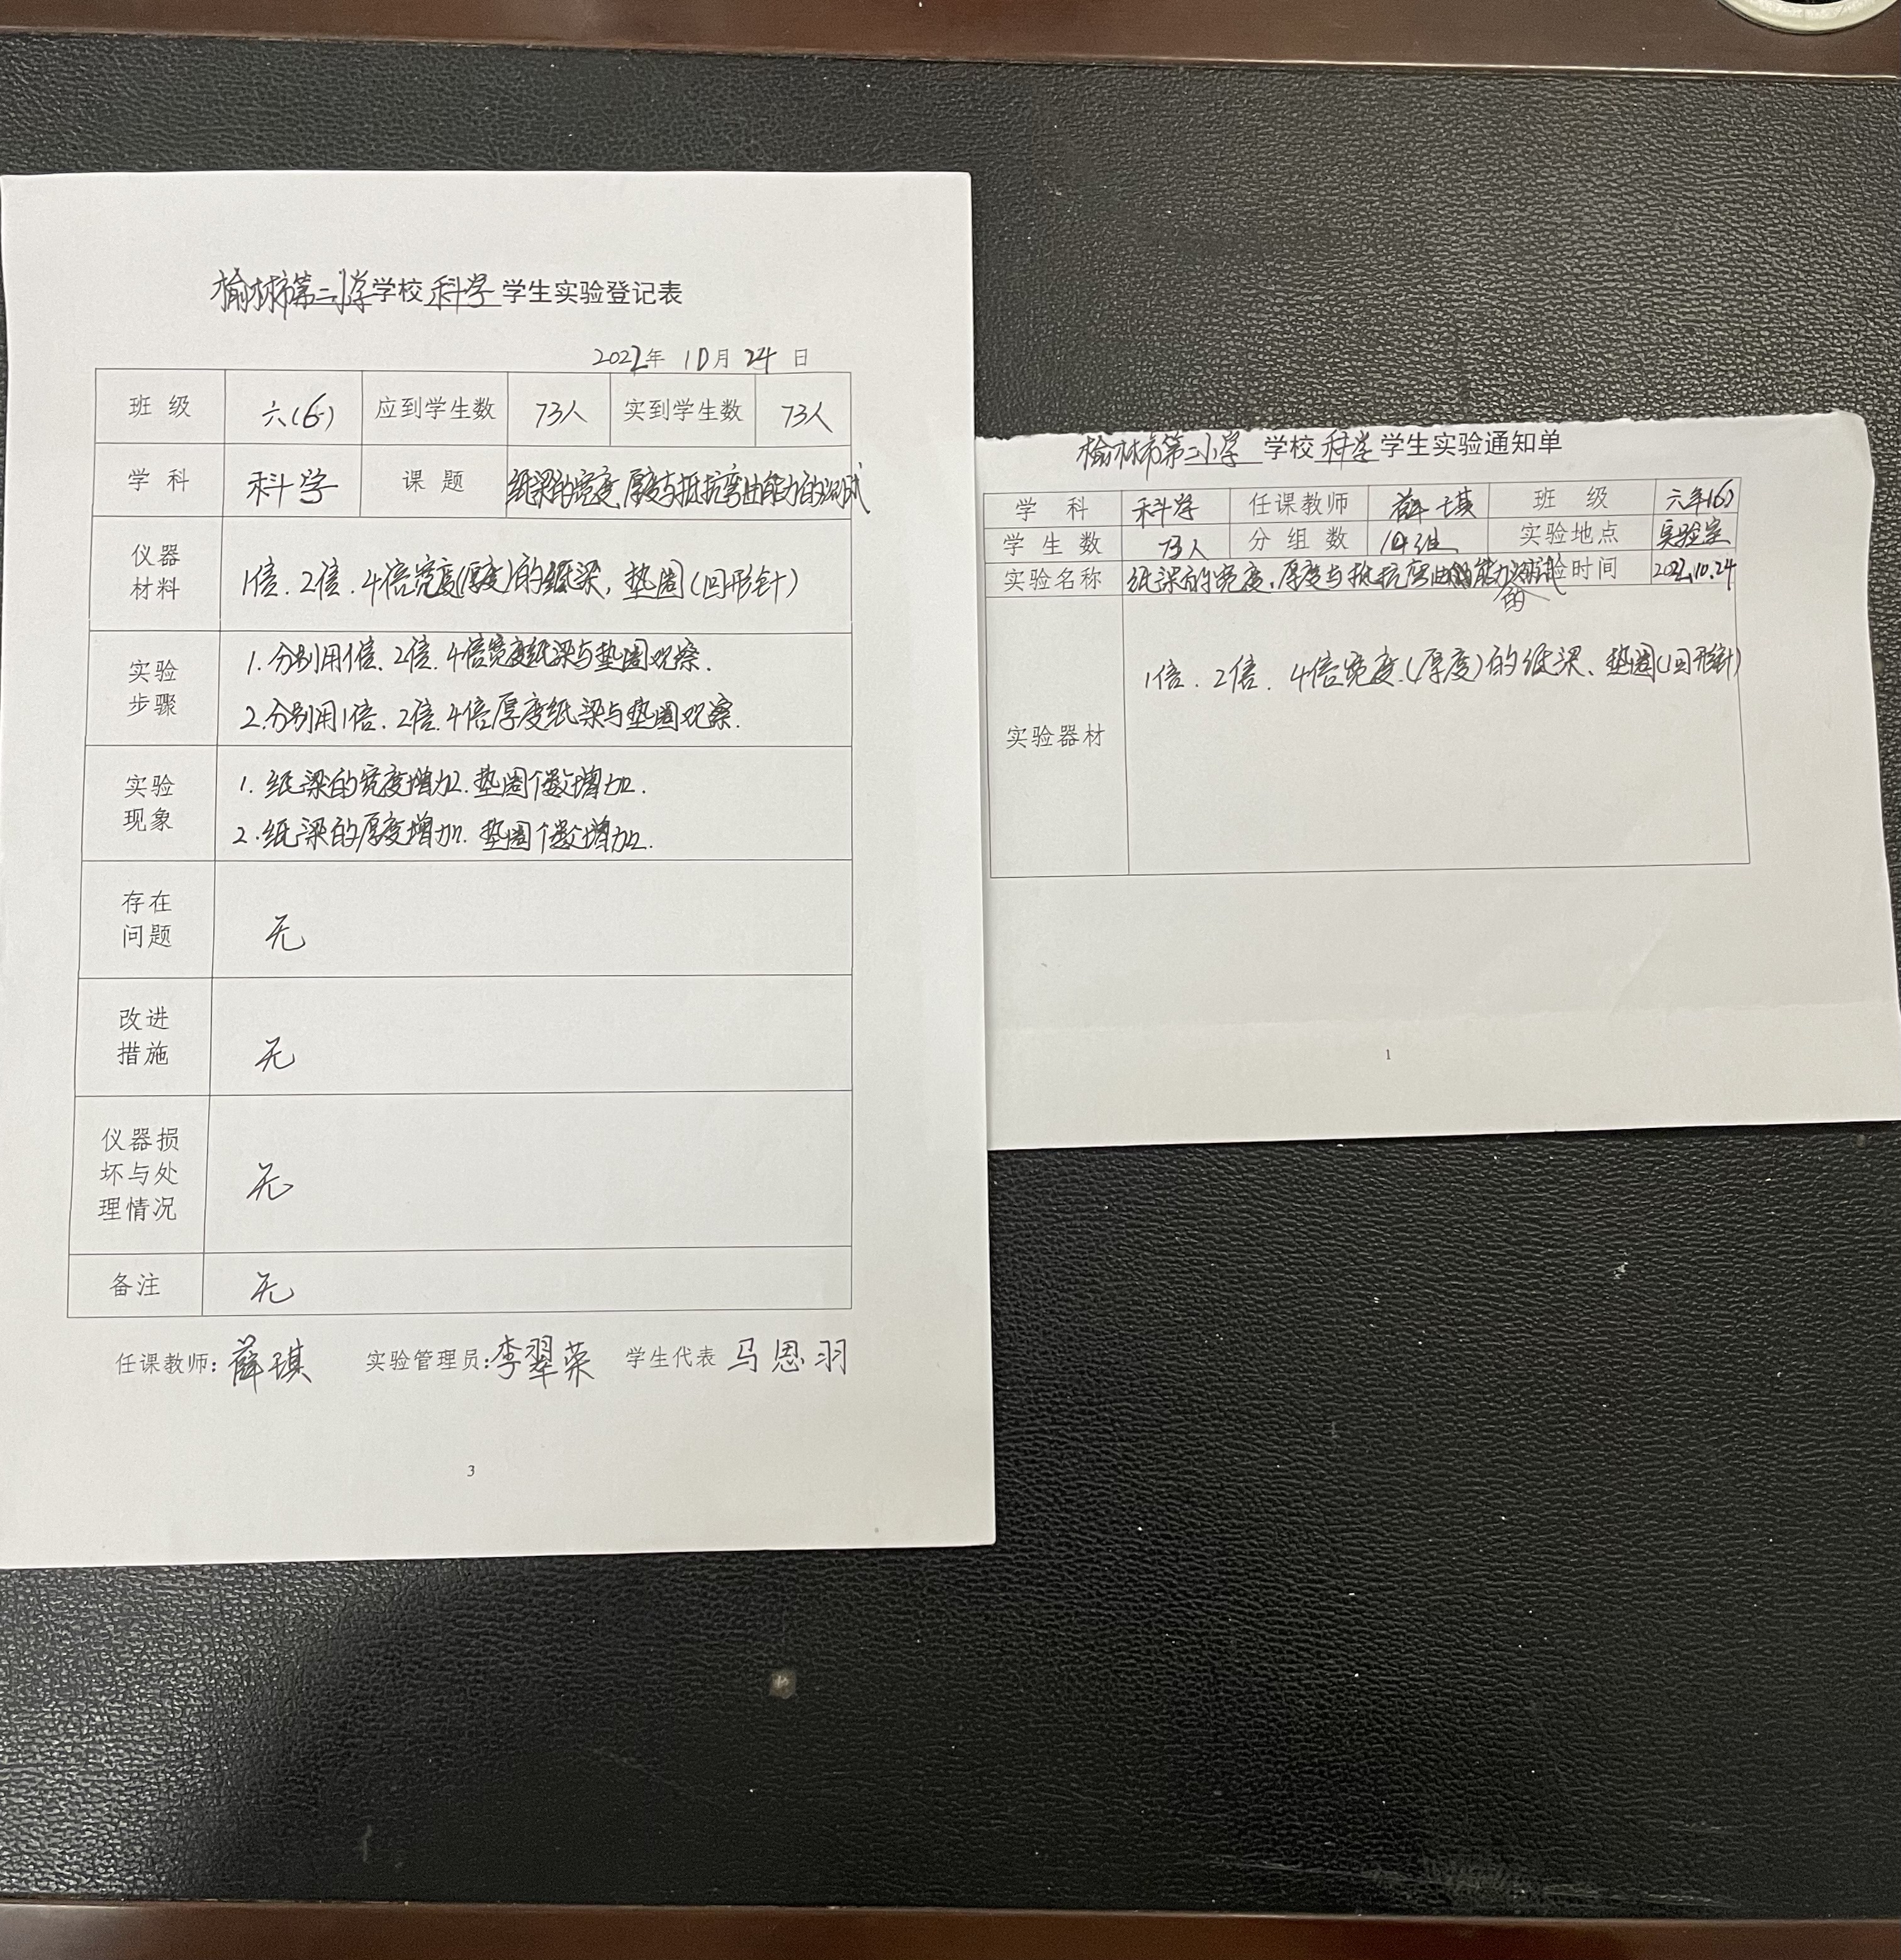 榆林市第二小学学校科学学生实验登记表
2022年 10月 24 日
班 级 六(6) 应到学生数 73人 实到学生数 73人
学 科 科学 课 题 纸梁的宽度、厚度与抵抗弯曲能力的测试
仪器
材料
1倍、2倍、4倍宽度(厚度)的纸梁，垫圈(回形针)
实验
步骤
1. 分别用1倍、2倍、4倍宽度纸梁与垫圈观察.
2. 分别用1倍、2倍、4倍厚度纸梁与垫圈观察.
实验
现象
1. 纸梁的宽度增加.垫圈个数增加.
2. 纸梁的厚度增加.垫圈个数增加.
存在
问题
无
改进
措施
无
仪器损
坏与处
理情况
无
备注 无
任课教师：薛琪 实验管理员：李翠荣 学生代表 马思羽
3
榆林市第二小学 学校科学学生实验通知单
学 科 科学 任课教师 薛琪 班 级 六年(6)
学 生 数 73人 分 组 数 14组 实验地点 实验室
实验名称 纸梁的宽度、厚度与抵抗弯曲的能力测试 验时间 2022.10.24
实验器材
1倍.2倍.4倍宽度.(厚度)的纸梁、垫圈(回形针)
1